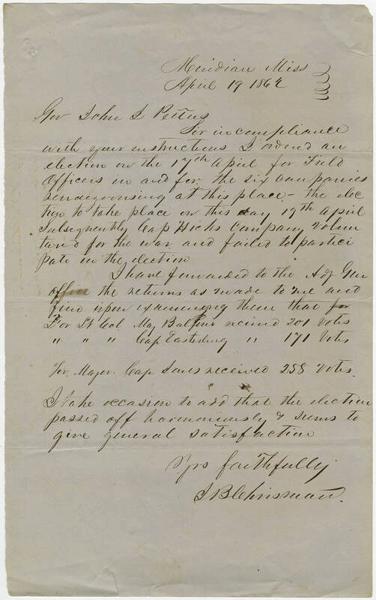 Meridian Miss
April 19 1862
Gov John J Pettus
Sir in compliance
with your instructions I orderd an
election on the 17th April for Field
Officers in and for the six Companies
rendezvousing at this place – the elec
tion to take place on this day 19th April
Subsequently Cap Hicks Company volun
tered for the war and failed to partici
pate in the election
I have forwarded to the Adj Gen
office the returns as made to me and
find upon examining them that for
For Lt Col Maj Balfour received 201 votes
" " " Cap Easterling " 171 votes
For Major Cap received 258 votes.
I take occasion to add that the election
passed off harmoniously & seems to
give general satisfaction
Yrs faithfully
J B Chrisman